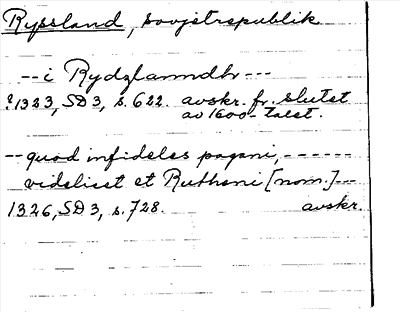 Ryssland, sovjetrepublik
--i Rydzlanndh---
?1323, SD 3, s. 622. avskr. fr. slutet
av 1600-talet.
--quod infideles pagani,------
videlicet et Rutheni [nom.]---
1326, SD 3, s. 728. avskr.